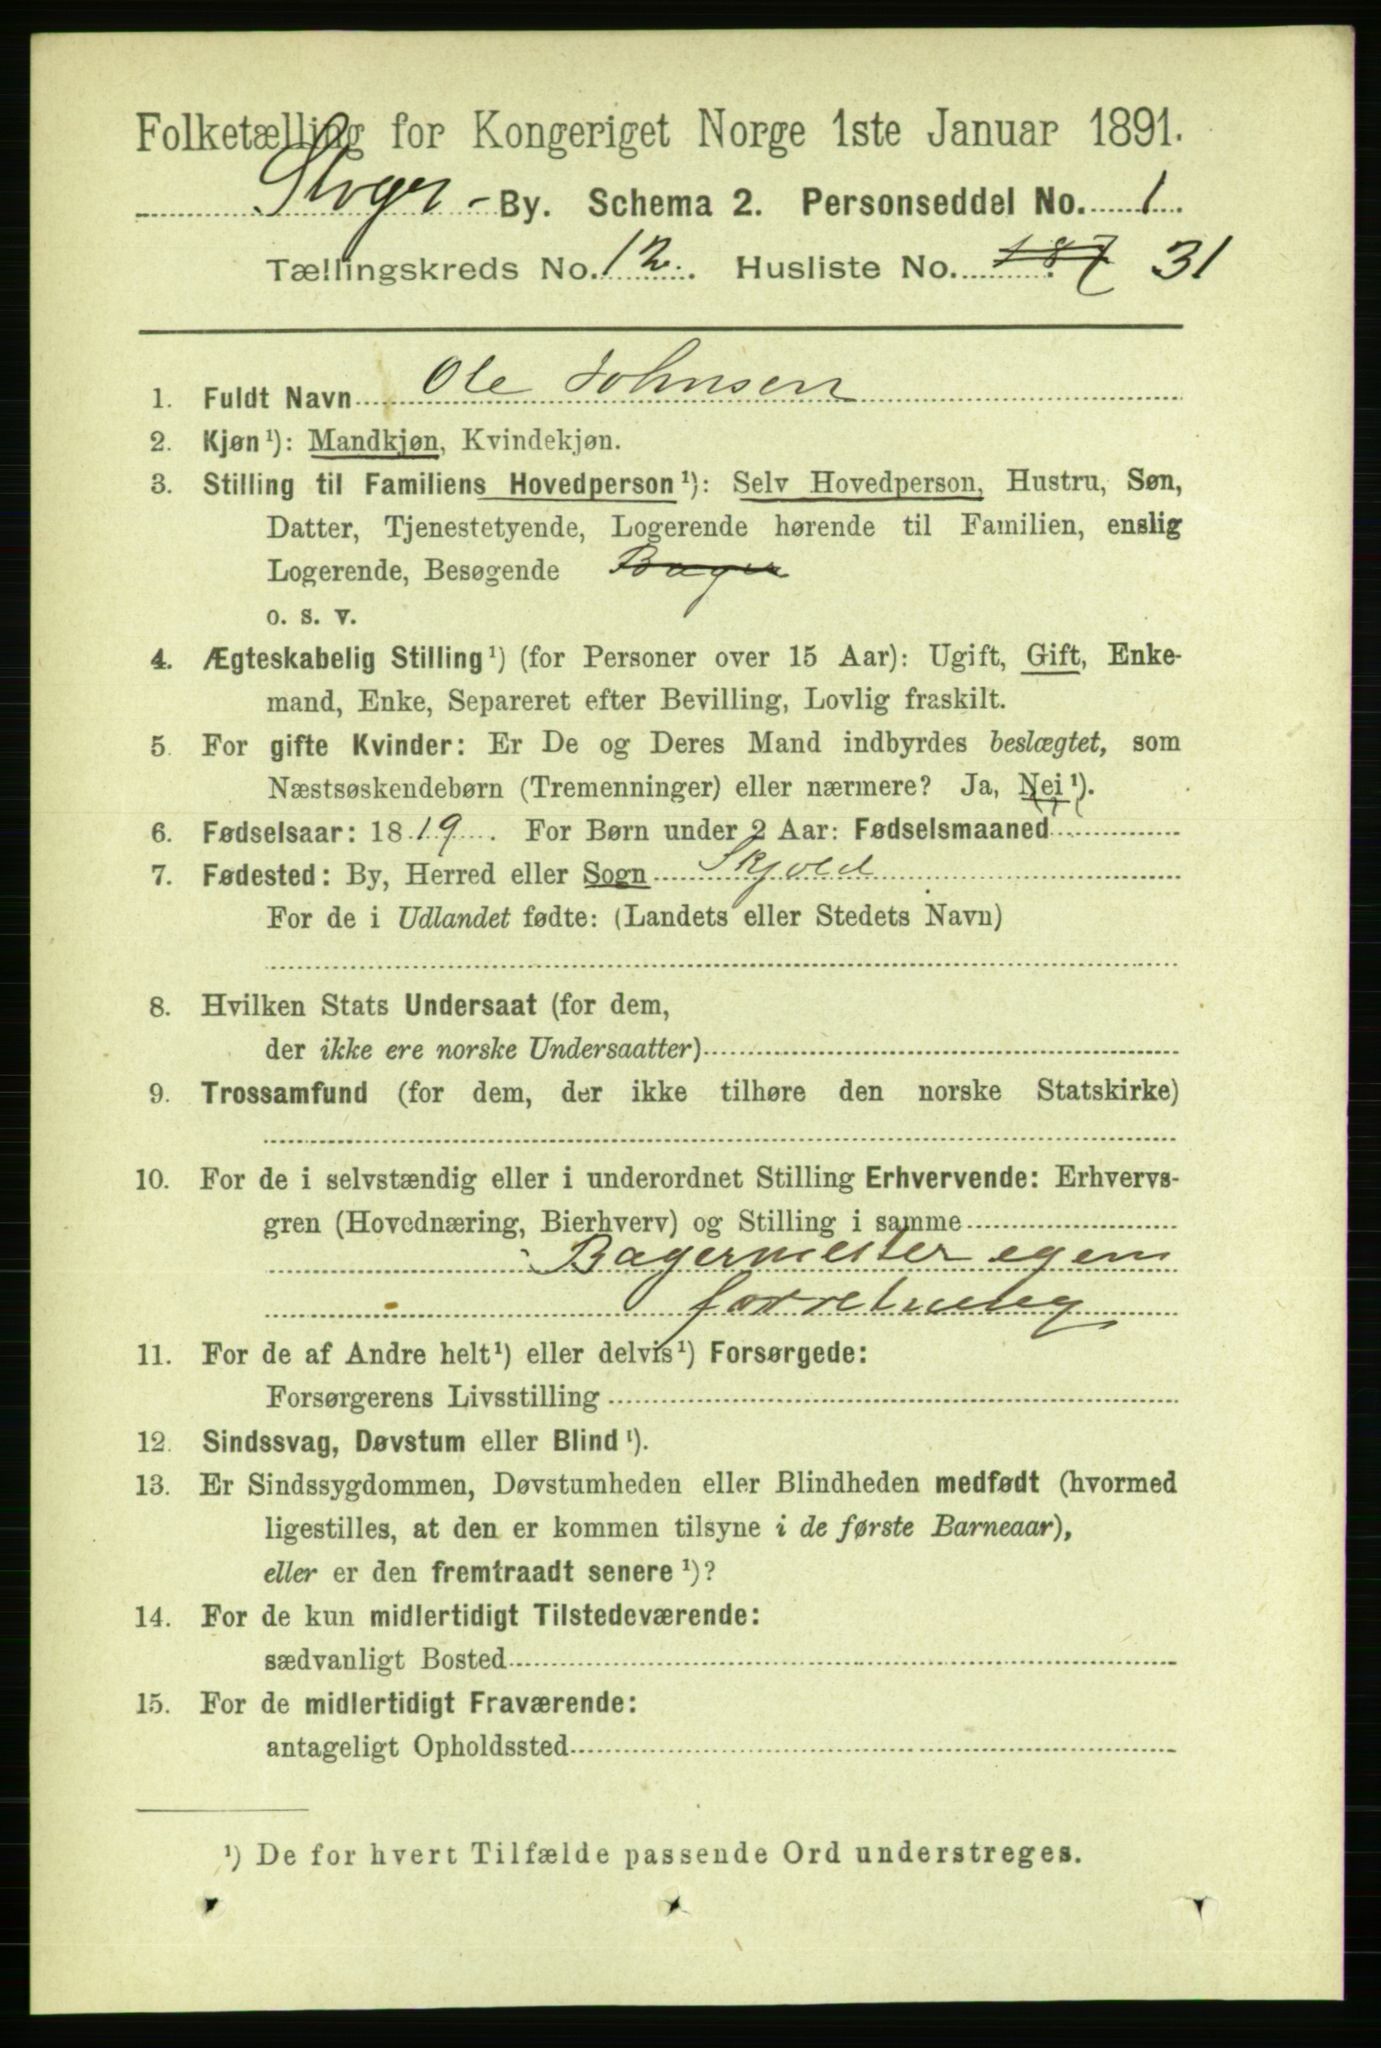 Folketælling for Kongeriget Norge 1ste Januar 1891.
By. Schema 2. Personseddel No. 1
Tællingskreds No. 12. Husliste No. 187 31
1. Fuldt Navn Ole Johnsen
2. Kjøn¹): Mandkjøn, Kvindekjøn.
3. Stilling til Familiens Hovedperson¹): Selv Hovedperson, Hustru, Søn,
Datter, Tjenestetyende, Logerende hørende til Familien, enslig
Logerende, Besøgende Bager
o. s. v.
4. Ægteskabelig Stilling¹) (for Personer over 15 Aar): Ugift, Gift, Enke-
mand, Enke, Separeret efter Bevilling, Lovlig fraskilt.
5. For gifte Kvinder: Er De og Deres Mand indbyrdes beslægtet, som
Næstsøskendebørn (Tremenninger) eller nærmere? Ja, Nei¹).
6. Fødselsaar: 1819. For Børn under 2 Aar: Fødselsmaaned
7. Fødested: By, Herred eller Sogn Skjold
For de i Udlandet fødte: (Landets eller Stedets Navn)
8. Hvilken Stats Undersaat (for dem,
der ikke ere norske Undersaatter)
9. Trossamfund (for dem, der ikke tilhøre den norske Statskirke)
10. For de i selvstændig eller i underordnet Stilling Erhvervende: Erhvervs-
gren (Hovednæring, Bierhverv) og Stilling i samme
Bagermester egen
forretning
11. For de af Andre helt¹) eller delvis¹) Forsørgede:
Forsørgerens Livsstilling
12. Sindssvag, Døvstum eller Blind¹).
13. Er Sindssygdommen, Døvstumheden eller Blindheden medfødt (hvormed
ligestilles, at den er kommen tilsyne i de første Barneaar),
eller er den fremtraadt senere¹)?
14. For de kun midlertidigt Tilstedeværende:
sædvanligt Bosted
15. For de midlertidigt Fraværende:
antageligt Opholdssted
¹) De for hvert Tilfælde passende Ord understreges.